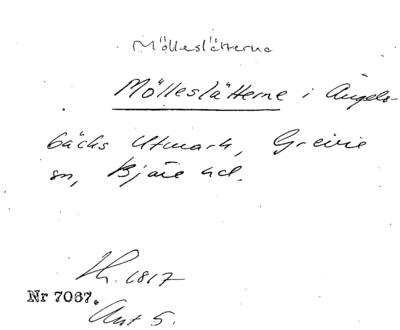 Mölleslätterna
Mölleslätterne i Ängels-
bäcks Utmark, Grevie
sn, Bjäre hd.
Lh. 1817
Nr 7067.
Ant 5.